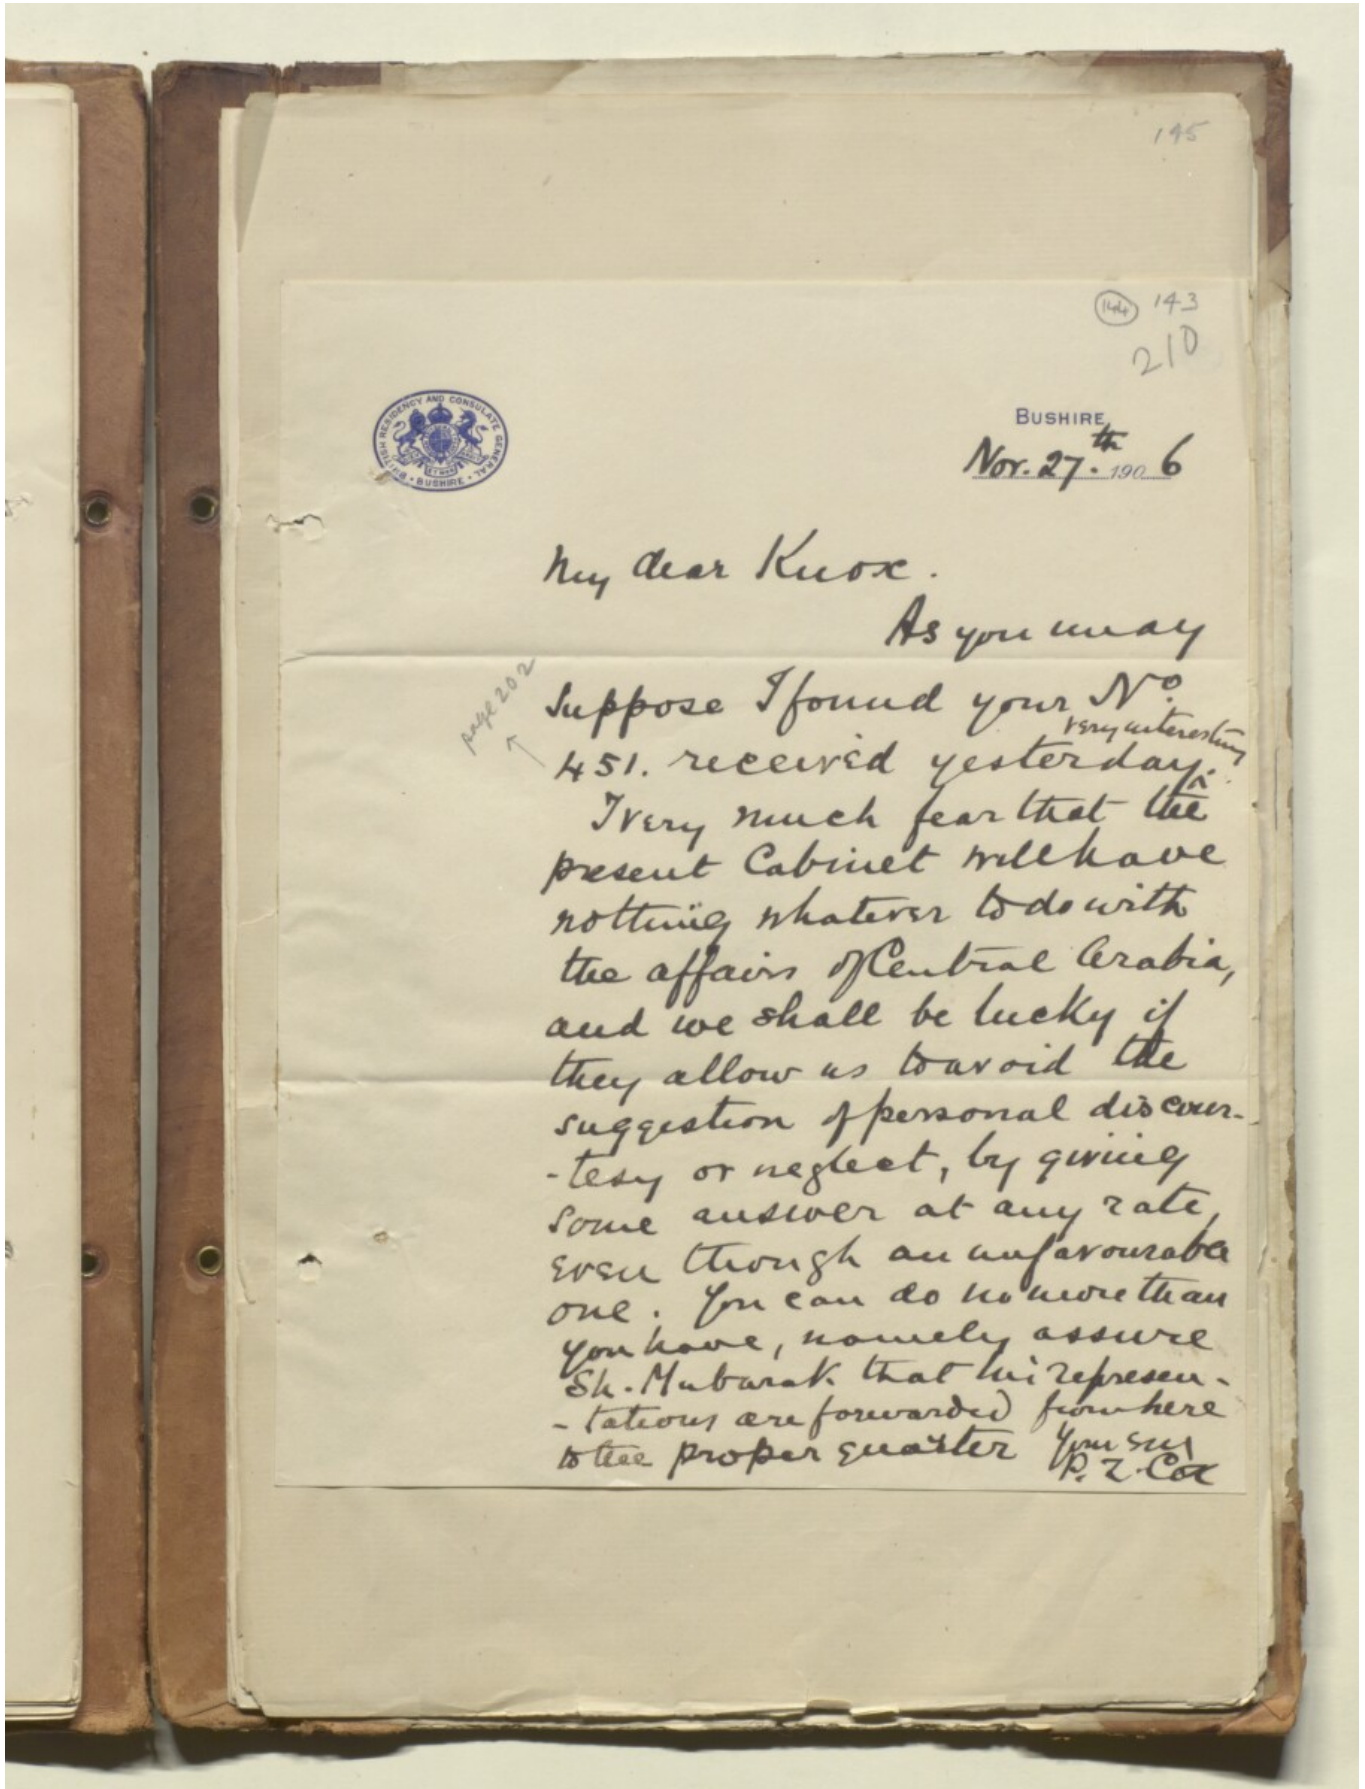 145
144 143
210
BRITISH RESIDENCY AND CONSULATE GENERAL
• BUSHIRE •
BUSHIRE
Nov. 27.th 1906
My dear Knox.
As you may
page 202
suppose I found your No.
very interesting
451. received yesterday ^.
I very much fear that the
present Cabinet will have
nothing whatever to do with
the affairs of Central Arabia,
and we shall be lucky if
they allow us to avoid the
suggestion of personal discour-
-tesy or neglect, by giving
some answer at any rate,
even though an unfavourable
one. You can do no more than
you have, namely assure
Sh. Mubarak that his represen-
-tations are forwarded from here
to the proper quarter Yours
P. Z. Cox